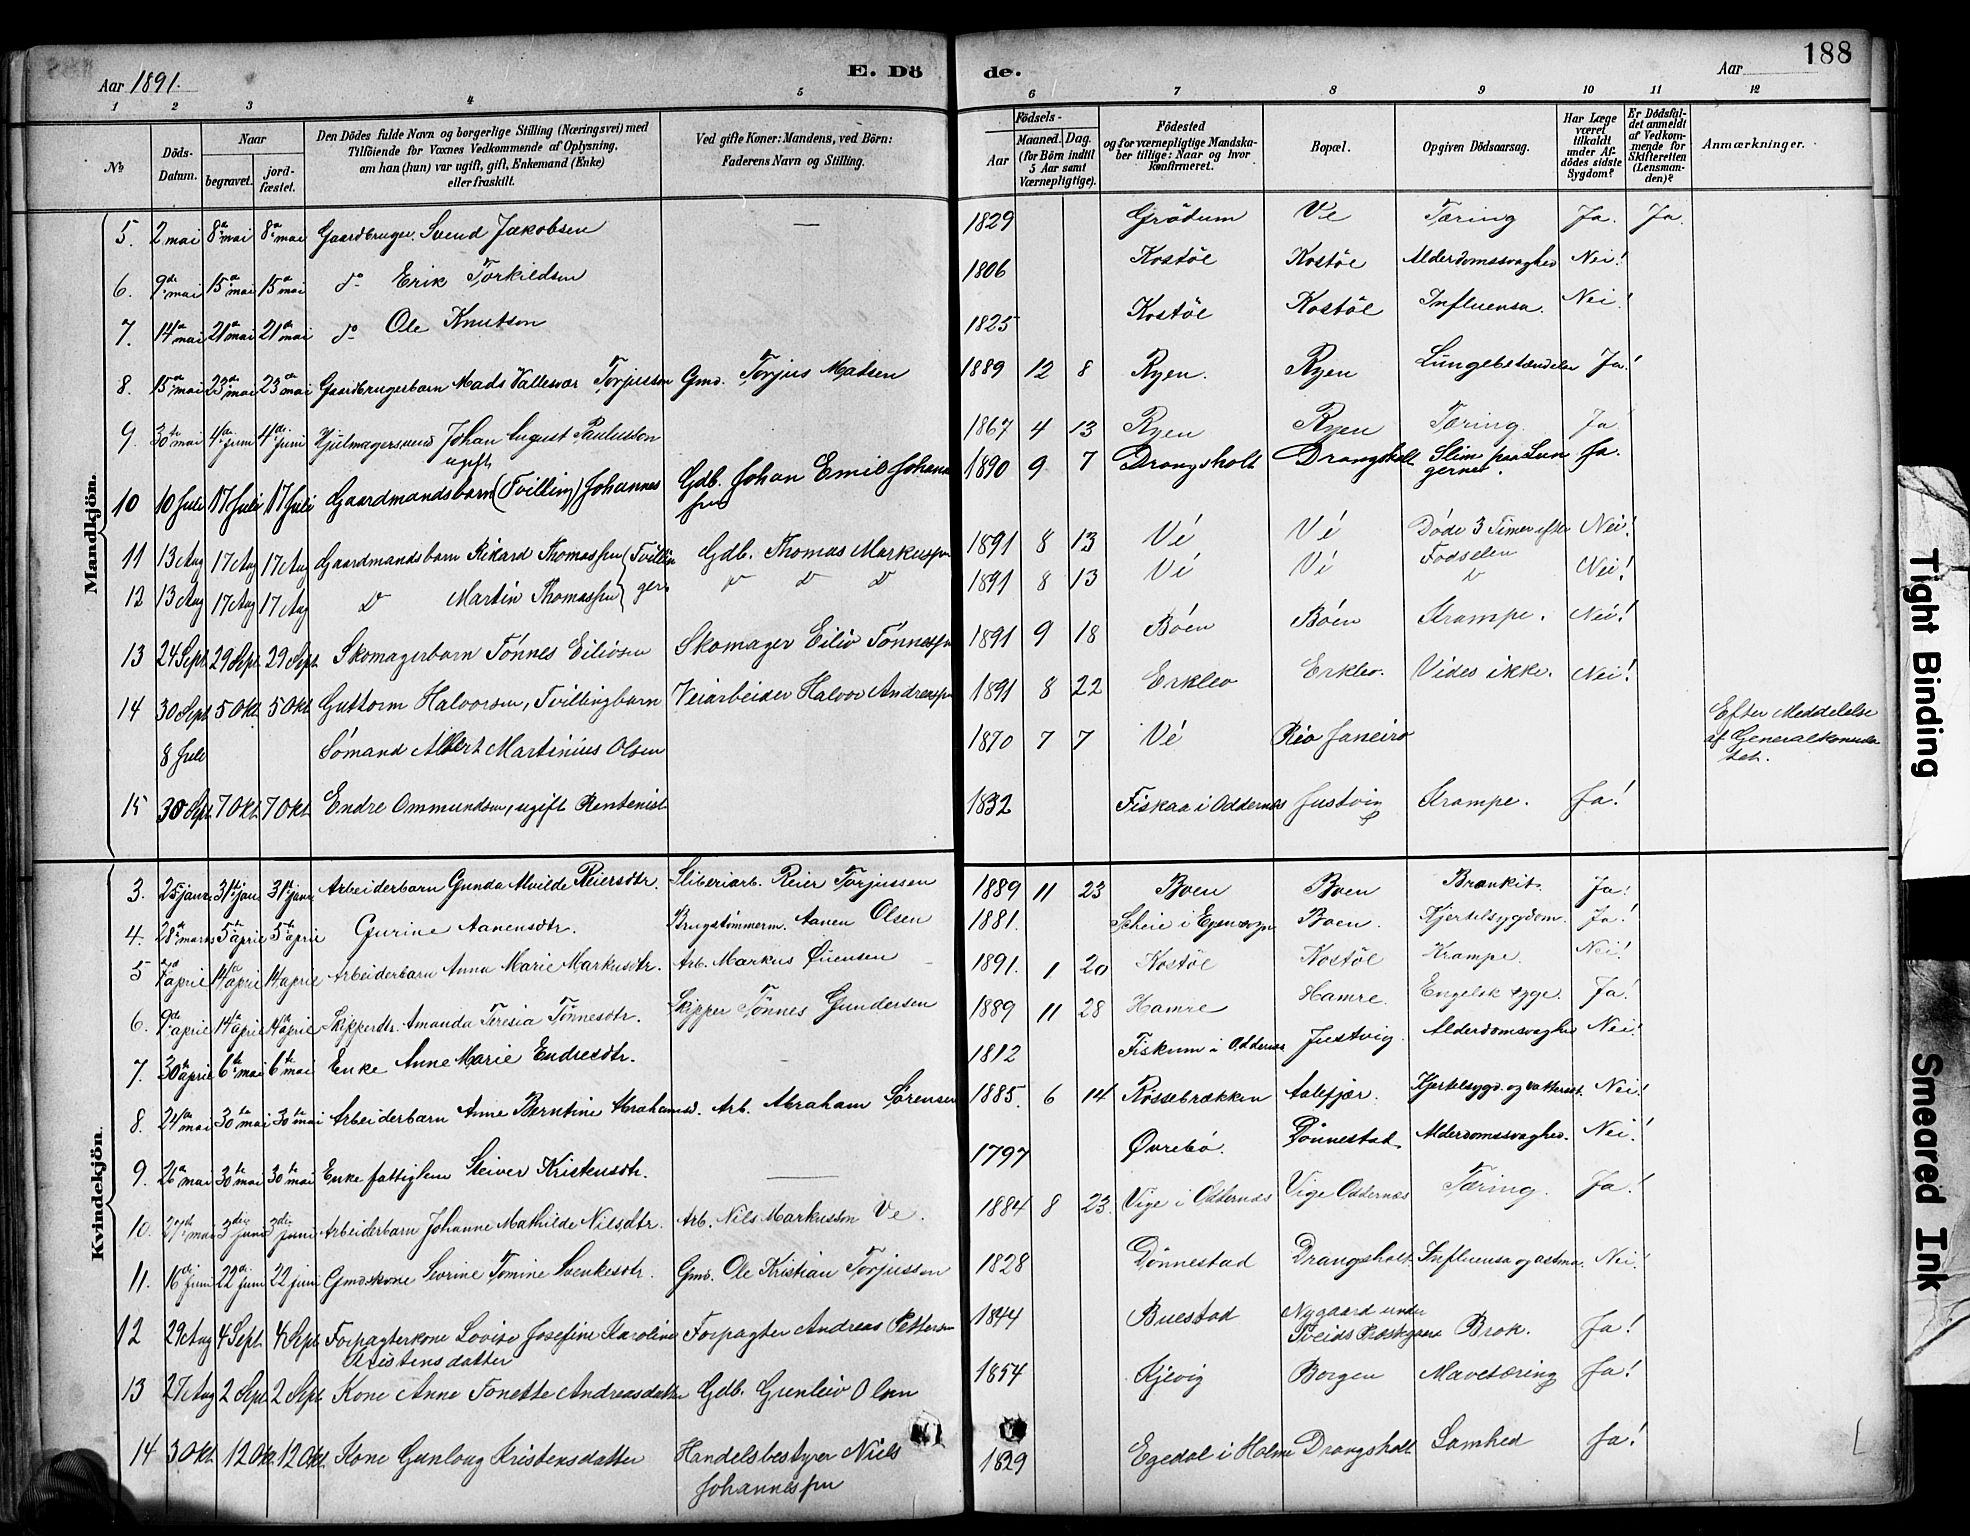 188
Aar 1891.
E. Dö
de.
Aar
1 2 3 4 5 6 7 8 9 10 11 12
№
Döds-Datum.
Naar
begravet.
jord-fæstet.
Den Dödes fulde Navn og borgerlige Stilling (Næringsvei) med
Tilföiende for Voxnes Vedkommende af Oplysning,
om han (hun) var ugift, gift, Enkemand (Enke)
eller fraskilt.
Ved gifte Koner: Mandens, ved Börn:
Faderens Navn og Stilling.
Födsels-
Aar
Maaned. Dag.
(for Börn indtil
5 Aar samt
Værnepligtige).
Födested
og for værnepligtige Mandska-
ber tillige: Naar og hvor
konfirmeret.
Bopæl.
Opgiven Dödsaarsag.
Har Læge
været
tilkaldt
under Af-
dödes sidste
Sygdom?
Er Dödsfal-
det anmeldt
af Vedkom-
mende for
Skifteretten
(Lensman-
den)?
Anmærkninger.
Mandkjön.
5. 2 mai 8de mai 8de mai Gaardbruger. Svend Jakobsen — 1829 Grödum Ve Tæring Ja. Ja.
6. 9de mai 15de mai 15de mai do Erik Torkildsen 1806 Kostöl Kostöl Alderdomssvaghed Nei!
7. 14de mai 21de mai 21de mai do Ole Knutson 1825 Kostöl Kostöl Influensa. Nei!
8. 15de mai 23de mai 23de mai Gaardbrugerbarn Mads Vallesvær Torjusson Gmd. Torjus Madsen 1889 12 8 Ryen. Ryen Lungebetændelse Ja!
9. 30te mai 4de juni 4de juni Hjulmagersvend Johan August Paulusson
ugift 1867 4 13 Ryen Ryen Tæring. Ja
10 10 Juli 17 Juli 17 Juli Gaardmandsbarn (Tvilling) Johannes Gdb. Johan Emil Johan
sen 1890 9 7 Drangsholt Drangsholt Slim paa Lun
gerne. Ja.
11 13 Aug 17 Aug 17 Aug Gaardmandsbarn Rikard Thomassen (Tvillin Gdb. Thomas Markussen 1891 8 13 Vé Vé Döde 3 Timer efter
Fodselen Nei!
12 13 Aug 17 Aug 17 Aug D Martin Thomassen ger D D D 1891 8 13 Vé Vé D Nei!
13 24 Sept. 29 Sept. 29 Sept. Skomagerbarn Tönnes Eilivsen Skomager Eiliv Tönnessen 1891 9 18 Böen Böen Krampe. Nei!
14 30 Sept 5 Okt. 5 Okt Guttorm Halvorsen, Tvillingbarn Veiarbeider Halvor Andressen 1891 8 22 Erklev Erklev. Vides ikke. Nei!
8 Juli Sömand Albert Martinius Olsen 1870 7 7 Vé Rio Janeiro Efter Meddelelse
af Generalkonsula
tet.
15 30 Sept. 7 Okt. 7 Okt Endre Ommundsen, ugift Rentenist 1832 Fiskaa i Oddernæs Justvig Krampe. Ja!
Kvindekjön.
3. 25 janr 31te janr 31te janr Arbeiderbarn Gunda Alvilde Reiersdtr. Sliberiarb. Reier Torjussen 1889 11 23 Boen Boen Bronkit. Ja!
4. 28de marts 5te april 5te april Gurine Aanensdtr. Brugstömmerm. Aanen Olsen 1881. Scheie i Evjensogn Boen. Kjertelsygdom. Ja!
5 april 14de april 14 april Arbeiderbarn Anna Marie Markusdtr. Arb. Markus 1891. 1 20 Kostöl Kostöl Krampe. Nei!
6. 9de april 14de april 14de april Skipperdtr. Amanda Teresia Tönnesdtr. Skipper Tönnes Gundersen 1889 11 28 Hamre Hamre. Engelsk syge. Ja!
7. 30te april 6te mai 6te mai Enke Anne Marie Endresdtr. 1812 Fiskum i Oddernæs Justvig. Alderdomsvaghed Nei!
8. 24de mai 30te mai 30te mai Arbeiderbarn Anne Berntine Abrahamsd. Arb. Abraham Sörensen 1885. 6 14 Rossebrækken Aalefjær. Kjertelsygd. og vattersot. Nei!
9. 26de mai 30te mai 30te mai Enke fattiglem Steiver Kristensdtr. — 1797 Övrebö. Dönnestad Alderdomssvaghed. Nei!
10. 27de mai 3die juni 3die juni Arbeiderbarn Johanne Mathilde Nilsdtr. Arb. Nils Markusson Ve. 1884 8 23. Vige i Oddernæs Vige Oddernæs Tæring. Ja!
11. 16de juni 22de juni 22 juni Gmdskone Severine Tomine Svenkesdtr. Gmd. Ole Kristian Torjussen 1828 Dönnestad Drangsholt Influensa og astma. Nei!
12 29 Aug 4 Sept. 4 Sept. Forpagterkone Lovise Josefine Karoline
Kristensdatter Forpagter Andreas Pettersen 1844 Buestad Nygaard under
Tveids Præstegaard Brok. Ja!
13 27 Aug 2 Sept. 2 Sept. Kone Anne Tonette Andreasdatter Gdb. Gunleiv Olsen 1854 Kjevig Borgen Mavetæring Ja!
14 3 Okt. 12 Okt. 12 Okt. Kone Gunloug Kristensdatter Handelsbestyrer Niels
Johannessen 1829 Egedal i Holme Drangsholt Ja!
Tight Binding
Smeared Ink